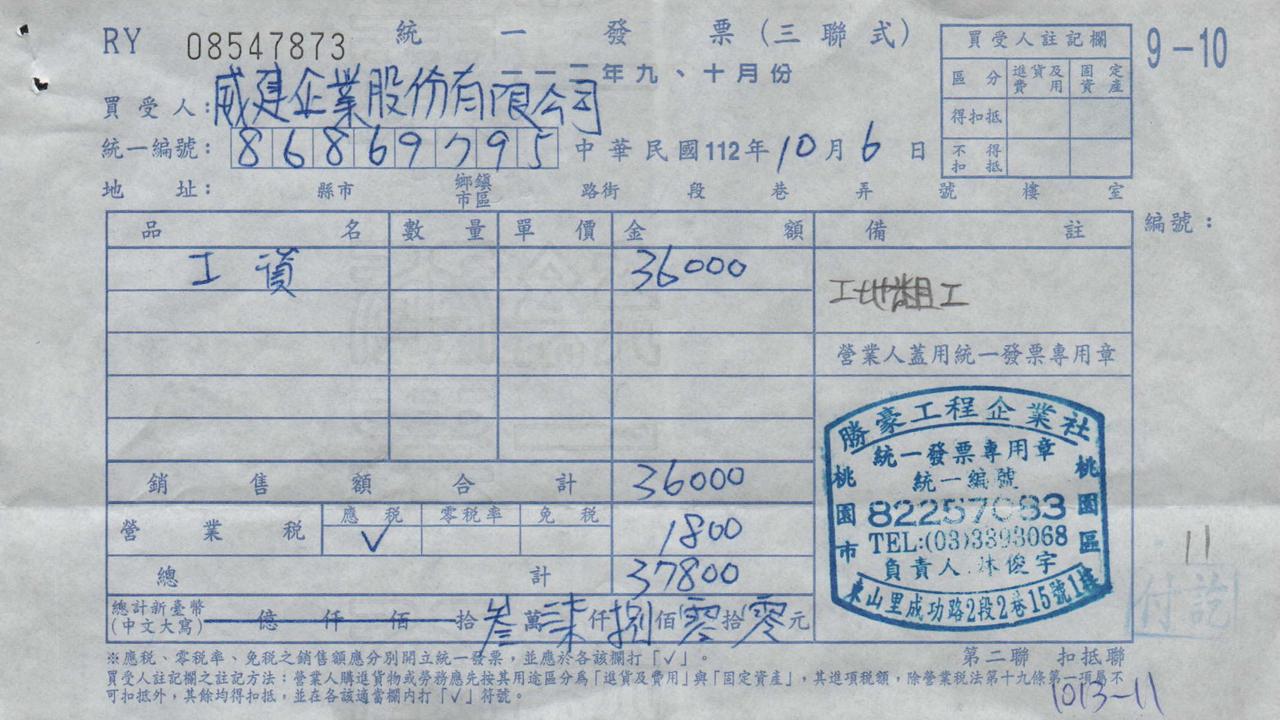 RY 08547873 統一發票(三聯式) 9-10
一一二年九、十月份
買受人:威建企業股份有限公司
統一編號:86869795 中華民國112年10月6日
地址: 縣市 鄉鎮市區 路街 段 巷 弄 號 樓 室
買受人註記欄
區分 進貨及費用 固定資產
得扣抵
不得扣抵
編號:
品名 數量 單價 金額 備註
工資 36000 工地粗工
營業人蓋用統一發票專用章
銷售額合計 36000
應稅 零稅率 免稅
營業稅 ✓ 1800
總計 37800
總計新臺幣(中文大寫) 億仟佰拾叁萬柒仟捌佰零拾零元
勝豪工程企業社
統一發票專用章
統一編號
82257083
TEL:(03)3393068
負責人:林俊宇
桃園市
桃園區
東山里成功路2段2巷15號1樓
11
付訖
※應稅、零稅率、免稅之銷售額應分別開立統一發票,並應於各該欄打「✓」。
第二聯 扣抵聯
買受人註記欄之註記方法:營業人購進貨物或勞務應先按其用途區分為「進貨及費用」與「固定資產」,其進項稅額,除營業稅法第十九條第一項屬不
可扣抵外,其餘均得扣抵,並在各該適當欄內打「✓」符號。
1013-11